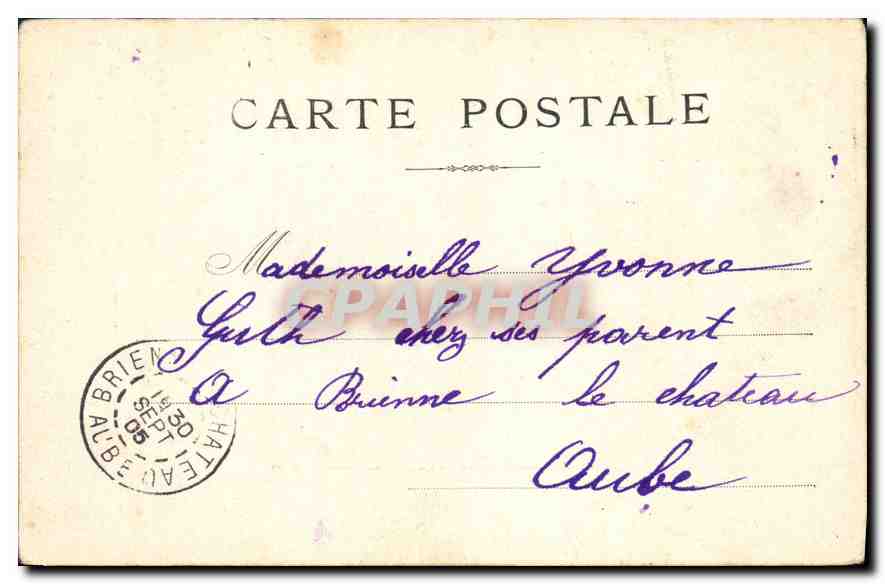 CARTE POSTALE
Mademoiselle Yvonne
Guth chez ses parent
A Brienne le chateau
Aube
BRIEN CHATEAU AUBE
30
SEPT
05
CPAPHIL